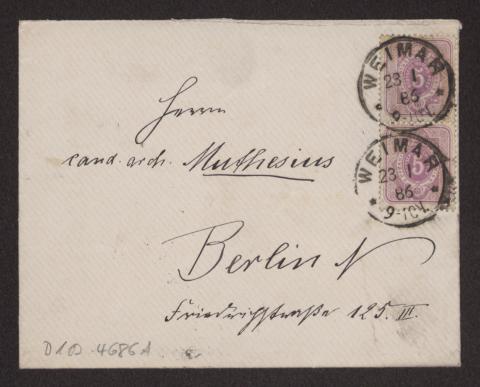 WEIMAR
23 1
86
9-10V.
5
WEIMAR
23 1
86
9-10V.
5
Herrn
cand. arch. Muthesius
Berlin N
Friedrichstraße 125. III.
D 102 4686 A